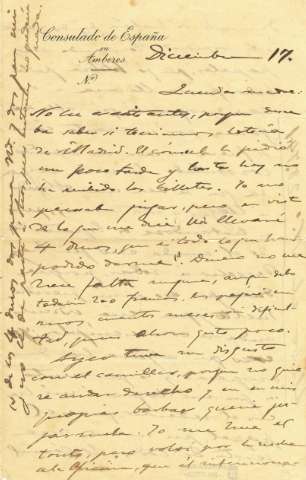 Consulado de España
en
Amberes
Nº
Diciembre 17.
Querida madre:
No he escrito antes, porque desea
ba saber si teníamos lotería
de Madrid. El cónsul la pidió
un poco tarde y hasta hoy no
ha recibido los billetes. Yo no
pensaba jugar, pero en vista
de lo que me dice Vd. llevaré
4 duros, que es todo lo que han
podido darme. Dinero no me
hace falta ninguna, aunque debo
todavía 200 francos, los pagaré en
unos cuantos meses sin dificul
tad, pues ahora gasto poco.
Sigo
un disgusto
con el
porque no quie
re andar derecho y en mis
propias barbas quería
Yo me hice el
tonto, pero
por la noche
a la oficina, que él
2 de los 4 duros, dos para Vd. y dos para mí